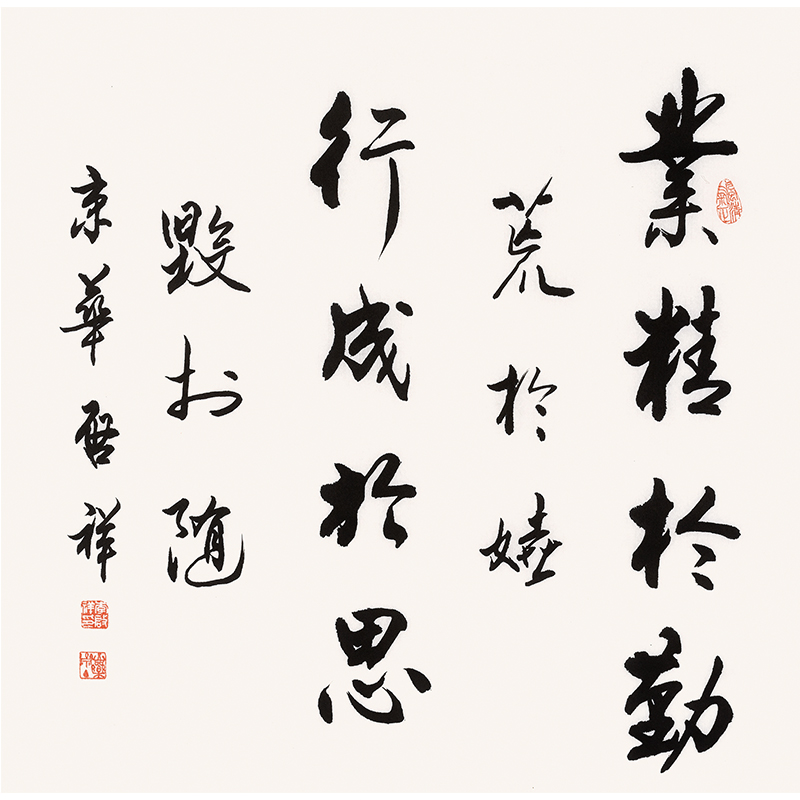 業精於勤
荒於嬉
行成於思
毀於隨
京華啓祥